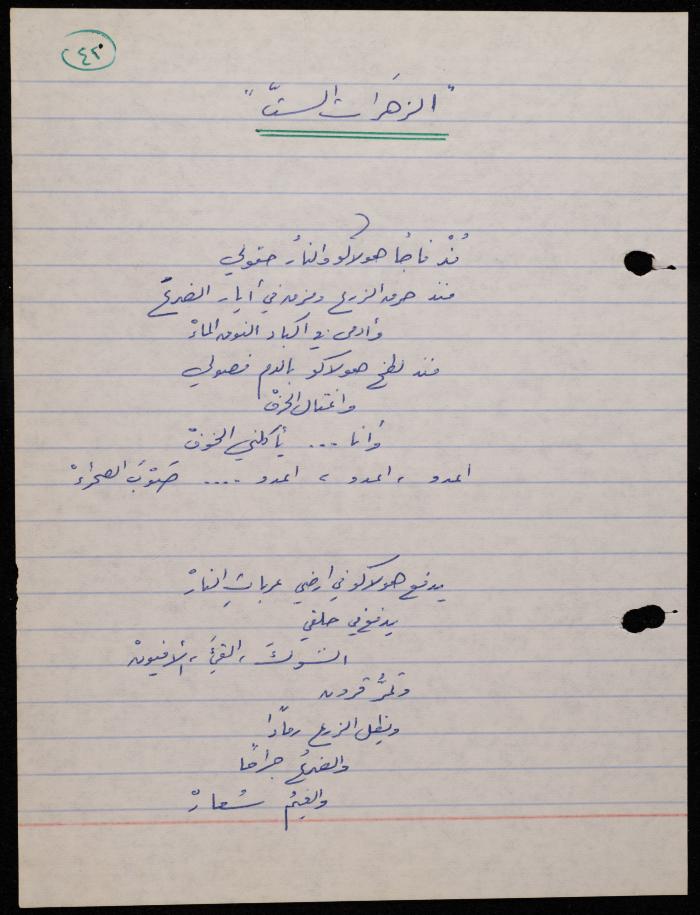 ٤٢
"الزهَرات الستّ"
مُنْذ فاجأ هولاكو والنارُ حقولي
منذ حرق الزرع ومزق في أيار الضرعْ
وأدمى في أكباد النوق الماءْ
منذ لطخ هولاكو بالدم فصولي
واغتال الحرفْ
وأنا ... يأكلني الخوفْ
أعدو ، أعدو ، أعدو .... صَوْبَ الصحراءْ
يدفع هولاكو في ارضي عرباتِ النارْ
يدفع في حلقي
الشوكَ ، القيْءَ ، الأفيونْ
وتمرُّ قرون
ويظل الزرع رمادًا
والضرعُ جرافًا
والغيمُ سُعارْ